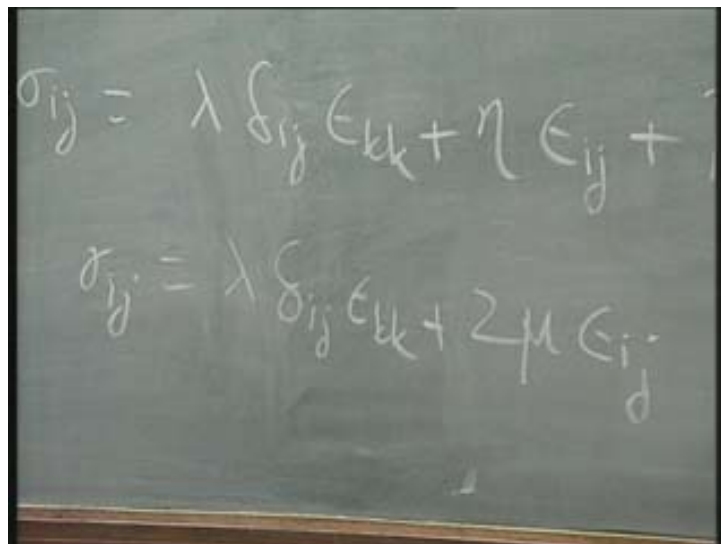 σij = λ δij ϵkk + η ϵij +
σij = λ δij ϵkk + 2μ ϵij